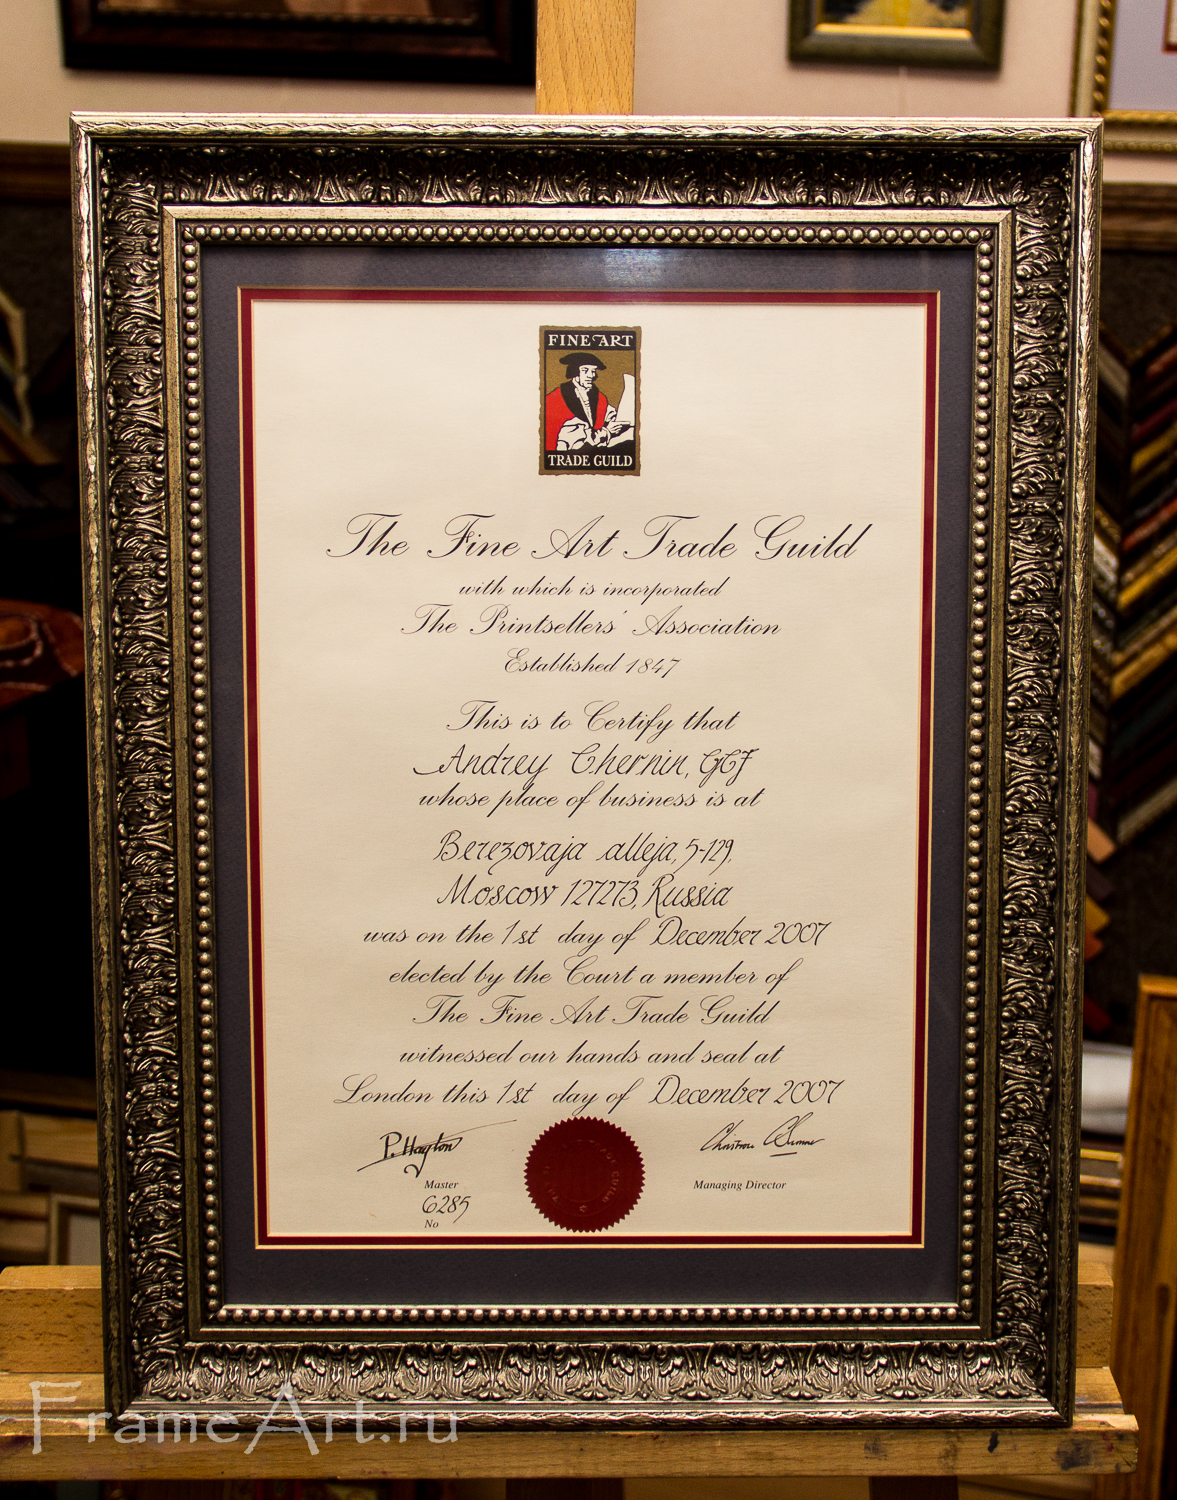 FINE ART
TRADE GUILD
The Fine Art Trade Guild
with which is incorporated
The Printsellers' Association
Established 1847
This is to Certify that
Andrey Chernin, GCF
whose place of business is at
Berezovaja alleja, 5-129,
Moscow 127273, Russia
was on the 1st day of December 2007
elected by the Court a member of
The Fine Art Trade Guild
witnessed our hands and seal at
London this 1st day of December 2007
P. Hayton
Master
Managing Director
6285
No
FrameArt.ru